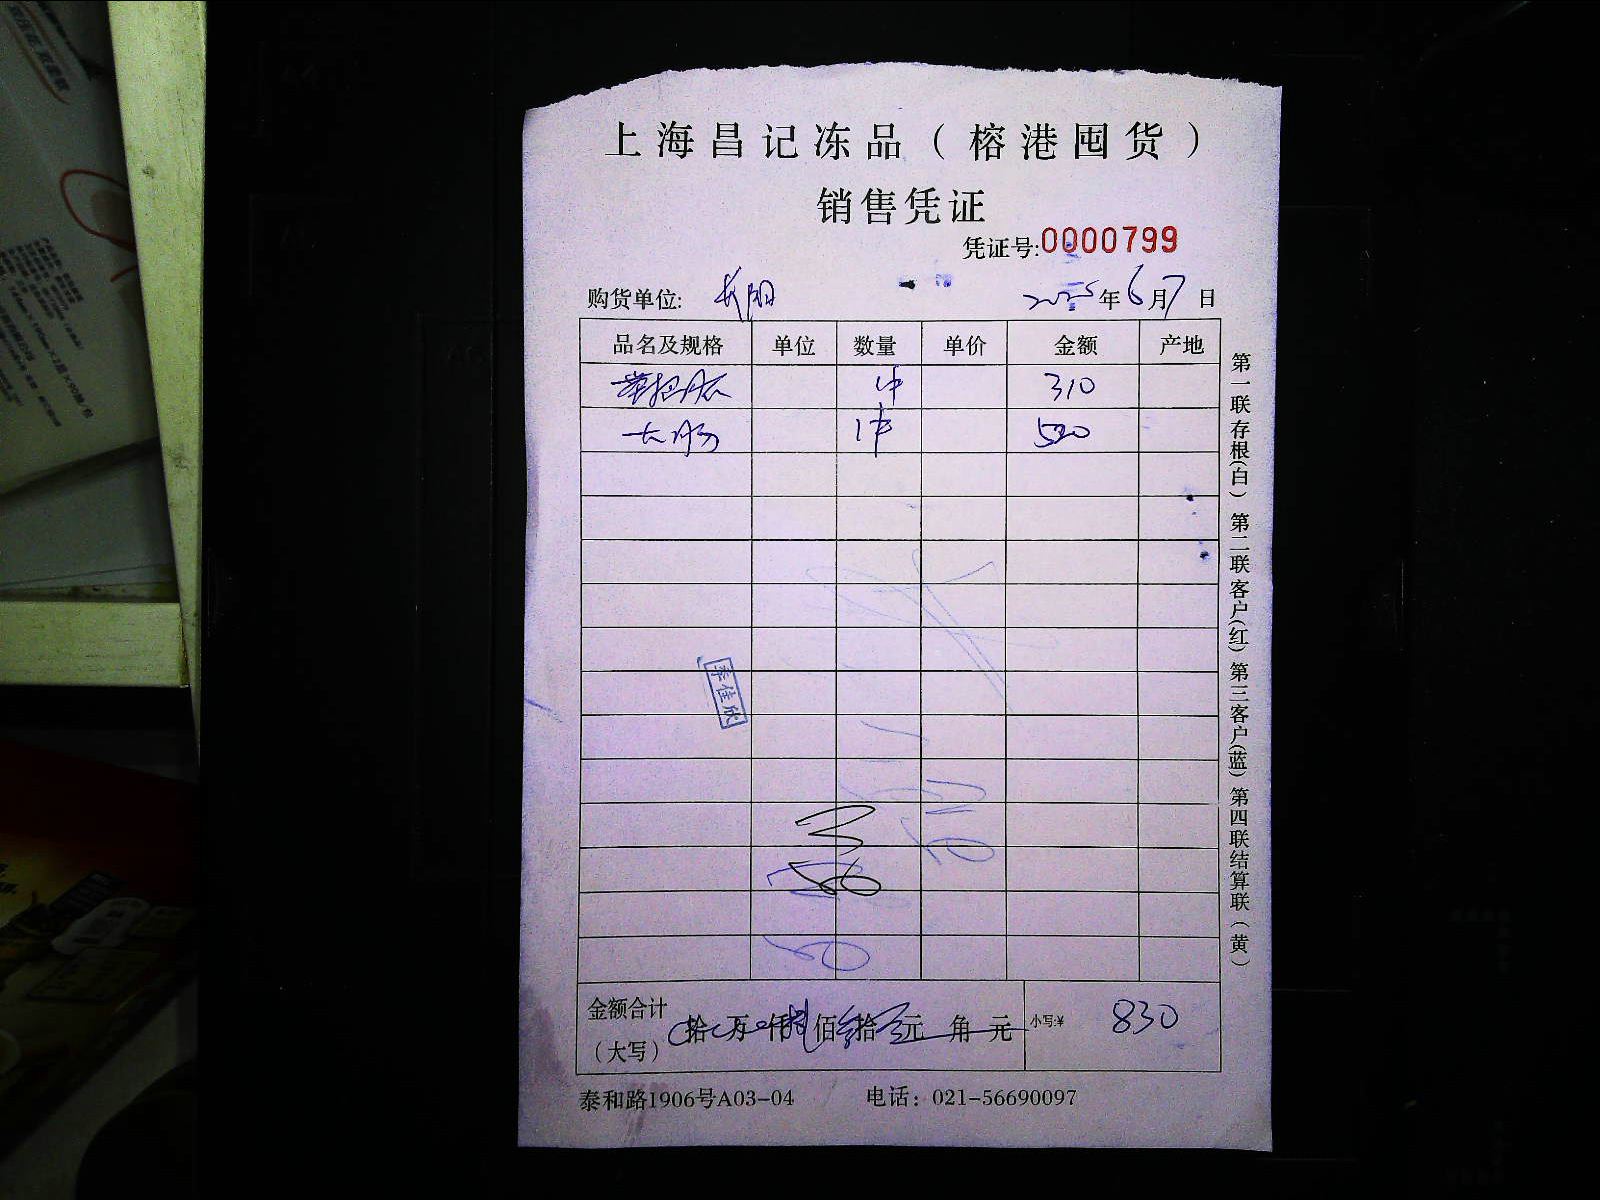 上海昌记冻品（榕港囤货）
销售凭证
凭证号:0000799
购货单位: 长阳 2025年6月7日
品名及规格 单位 数量 单价 金额 产地
1件 310
大肠 1件 520
季佳欣
金额合计（大写） 拾 万 仟 佰 拾 元 角 元 小写:¥ 830
泰和路1906号A03-04 电话：021-56690097
第一联存根(白) 第二联客户(红) 第三客户(蓝) 第四联结算联(黄)